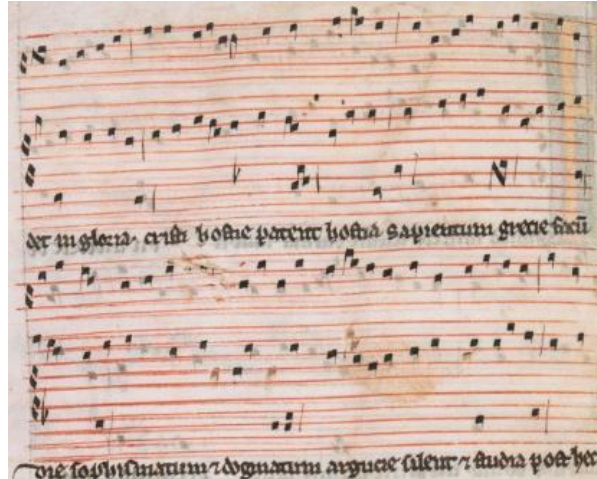 det in gloria. cristi hostie patent hostia sapientum grecie facū
die sophismatum ⁊ dogmatum argucie silent ⁊ studia post hec